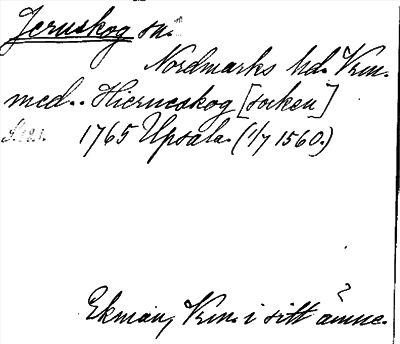 Jernskog sn.
Nordmarks hd. Vrm.
med. Hierneskog [socken]
1765 Upsala. (1/7 1560.)
?
Ekman, Vrm. i sitt ämne.